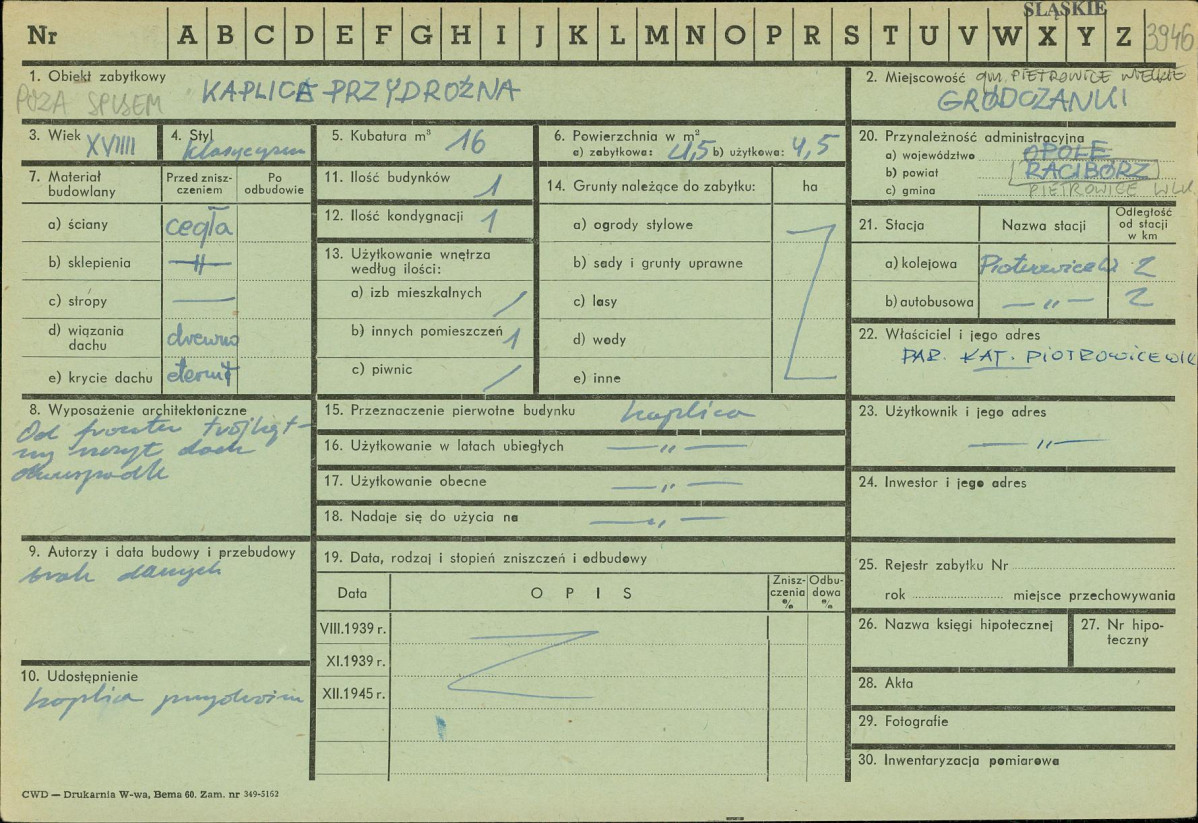 ŚLĄSKIE
Nr A B C D E F G H I J K L M N O P R S T U V W X Y Z 3946
1. Obiekt zabytkowy
POZA SPISEM KAPLICA PRZYDROŻNA
2. Miejscowość gm. PIETROWICE WIELKIE
GRÓDCZANKI
3. Wiek XVIIII
4. Styl klasycyzm
5. Kubatura m³ 16
6. Powierzchnia w m²
a) zabytkowa: 4,5 b) użytkowa: 4,5
20. Przynależność administracyjna
a) województwo OPOLE
b) powiat RACIBÓRZ
c) gmina PIETROWICE WLK
7. Materiał budowlany
Przed zniszczeniem
Po odbudowie
a) ściany cegła
b) sklepienia —"—
c) stropy —
d) wiązania dachu drewno
e) krycie dachu eternit
11. Ilość budynków 1
12. Ilość kondygnacji 1
13. Użytkowanie wnętrza
według ilości:
a) izb mieszkalnych /
b) innych pomieszczeń 1
c) piwnic /
14. Grunty należące do zabytku: ha
a) ogrody stylowe
b) sady i grunty uprawne
c) lasy
d) wody
e) inne
21. Stacja Nazwa stacji Odległość od stacji w km
a) kolejowa Piotrowice W 2
b) autobusowa —"— 2
22. Właściciel i jego adres
PAR. KAT. PIOTROWICE WIK
8. Wyposażenie architektoniczne
Od frontu trójkąt-
ny szczyt dach
dwuspadk
15. Przeznaczenie pierwotne budynku kaplica
16. Użytkowanie w latach ubiegłych —"—
17. Użytkowanie obecne —"—
18. Nadaje się do użycia na —"—
23. Użytkownik i jego adres
—"—
24. Inwestor i jego adres
9. Autorzy i data budowy i przebudowy
brak danych
19. Data, rodzaj i stopień zniszczeń i odbudowy
Data OPIS Zniszczenia % Odbudowa %
VIII.1939 r.
XI.1939 r.
XII.1945 r.
25. Rejestr zabytku Nr
rok miejsce przechowywania
26. Nazwa księgi hipotecznej
27. Nr hipoteczny
10. Udostępnienie
kaplica przydrożna
28. Akta
29. Fotografie
30. Inwentaryzacja pomiarowa
CWD — Drukarnia W-wa, Bema 60. Zam. nr 349-5162